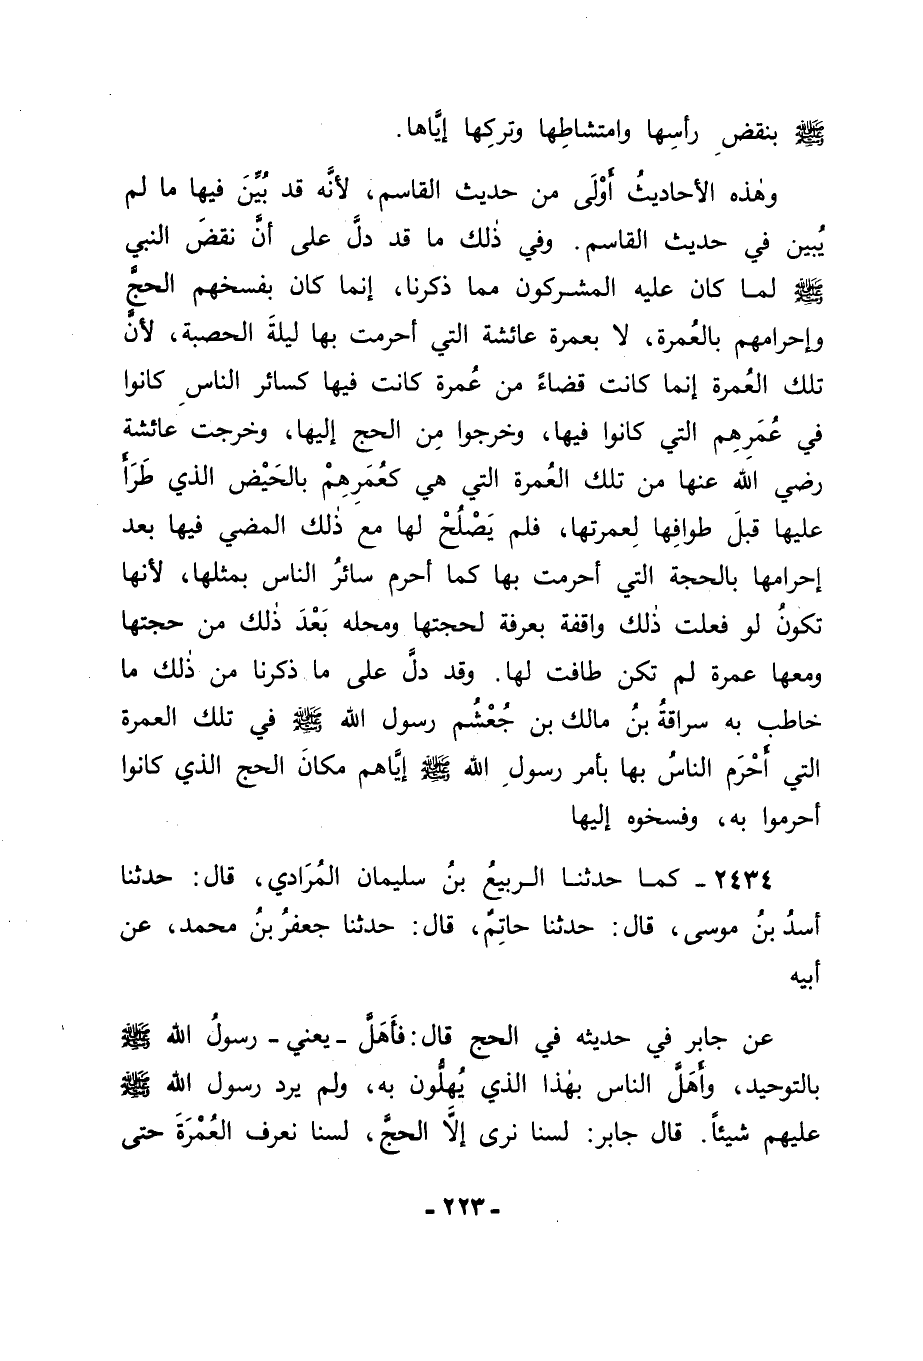 ﷺ بنقضِ رأسِها وامتشاطِها وتركِها إيَّاها.
وهٰذه الأحاديثُ أَوْلَى من حديث القاسم، لأنَّه قد بُيِّنَ فيها ما لم
يُبين في حديث القاسم. وفي ذٰلك ما قد دلَّ على أنَّ نقضَ النبي
ﷺ لما كان عليه المشركون مما ذكرنا، إنما كان بفسخهم الحجَّ
وإحرامهم بالعُمرة، لا بعمرة عائشة التي أحرمت بها ليلةَ الحصبة، لأنَّ
تلك العُمرة إنما كانت قضاءً من عُمرة كانت فيها كسائر الناسِ كانوا
في عُمَرِهم التي كانوا فيها، وخرجوا مِن الحج إليها، وخرجت عائشة
رضي الله عنها من تلك العُمرة التي هي كعُمَرِهِمْ بالحَيْض الذي طَرَأَ
عليها قبلَ طوافِها لِعمرتها، فلم يَصْلُحْ لها مع ذٰلك المضي فيها بعد
إحرامها بالحجة التي أحرمت بها كما أحرم سائرُ الناس بمثلها، لأنها
تكونُ لو فعلت ذٰلك واقفة بعرفة لحجتها ومحله بَعْدَ ذٰلك من حجتها
ومعها عمرة لم تكن طافت لها. وقد دلَّ على ما ذكرنا من ذٰلك ما
خاطب به سراقةُ بنُ مالك بن جُعْشُم رسول الله ﷺ في تلك العمرة
التي أَحْرَم الناسُ بها بأمر رسولِ الله ﷺ إيَّاهم مكانَ الحج الذي كانوا
أحرموا به، وفسخوه إليها
٢٤٣٤ ـ كما حدثنا الربيعُ بنُ سليمان المُرَادي، قال: حدثنا
أسدُ بنُ موسى، قال: حدثنا حاتِمٌ، قال: حدثنا جعفرُ بنُ محمد، عن
أبيه
عن جابر في حديثه في الحج قال: فأَهَلَّ ـ يعني ـ رسولُ الله ﷺ
بالتوحيد، وأَهَلَّ الناس بهٰذا الذي يُهلُّون به، ولم يرد رسول الله ﷺ
عليهم شيئاً. قال جابر: لسنا نرى إلَّا الحجَّ، لسنا نعرف العُمْرَةَ حتى
ـ ٢٢٣ ـ